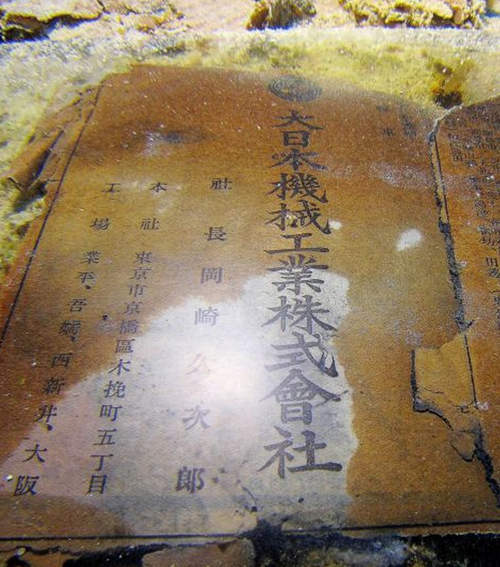 大日本機械工業株式會社
社長岡崎久次郎
本社 東京市京橋區木挽町五丁目
工場 業平、吾嬬、西新井、大阪